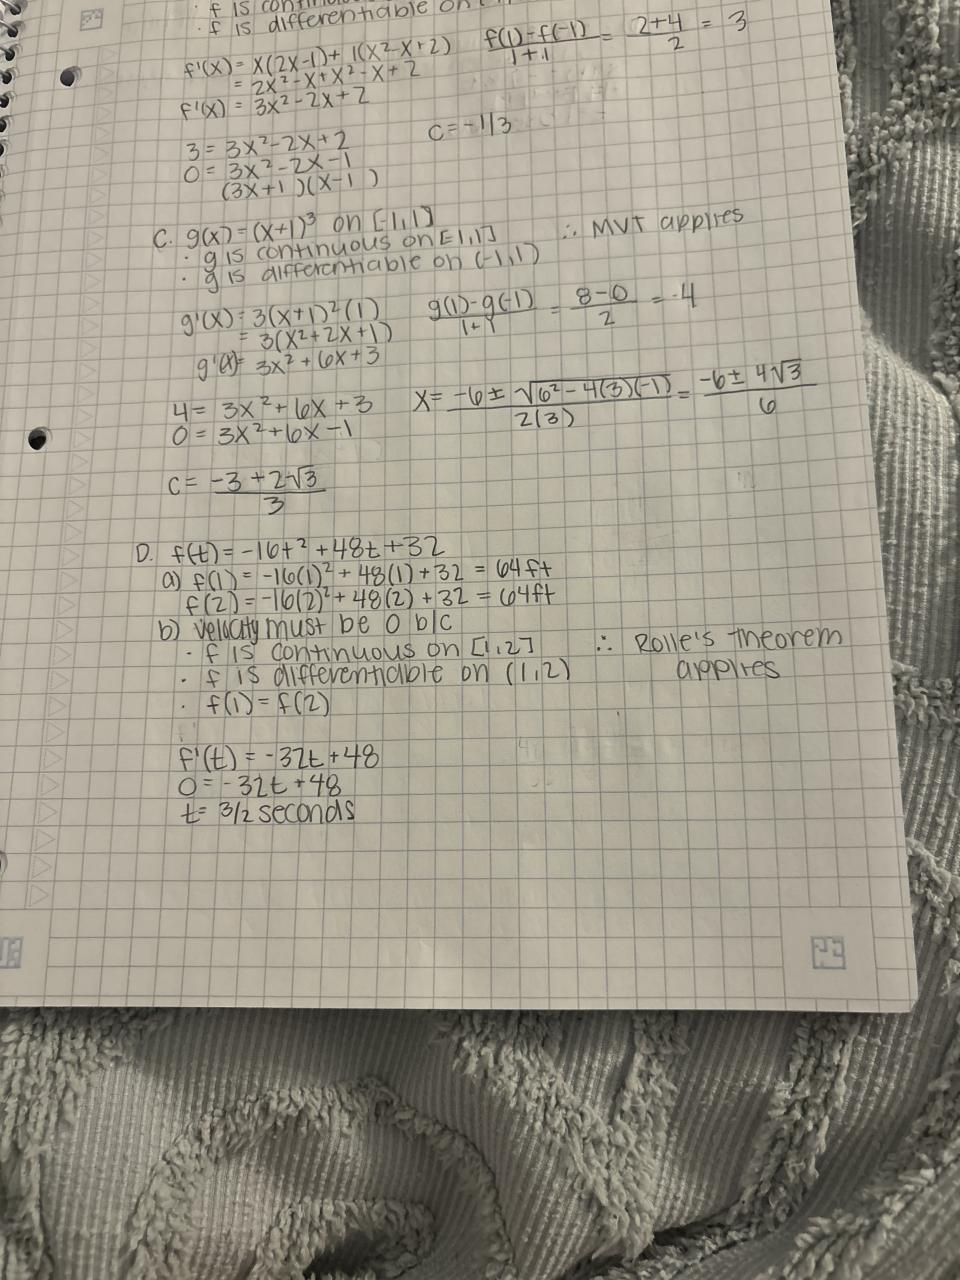 · f is contin
· f is differentiable on
f'(x) = x(2x-1) + 1(x²-x+2)
= 2x²-x+x²-x+2
f'(x) = 3x²-2x+2
f(1)-f(-1)/1+1 = 2+4/2 = 3
3 = 3x²-2x+2
0 = 3x²-2x-1
(3x+1)(x-1)
c = -1/3
C. g(x) = (x+1)³ on [-1,1]
· g is continuous on [-1,1]
· g is differentiable on (-1,1)
∴ MVT applies
g'(x) = 3(x+1)²(1)
= 3(x²+2x+1)
g'(x) = 3x²+6x+3
g(1)-g(-1)/1+1 = 8-0/2 = 4
4 = 3x²+6x+3
0 = 3x²+6x-1
x = -6 ± √6²-4(3)(-1)/2(3) = -6 ± 4√3/6
c = -3+2√3/3
D. f(t) = -16t²+48t+32
a) f(1) = -16(1)²+48(1)+32 = 64ft
f(2) = -16(2)²+48(2)+32 = 64ft
b) velocity must be 0 b/c
· f is continuous on [1,2]
· f is differentiable on (1,2)
· f(1) = f(2)
∴ Rolle's theorem
applies
f'(t) = -32t+48
0 = -32t+48
t = 3/2 seconds